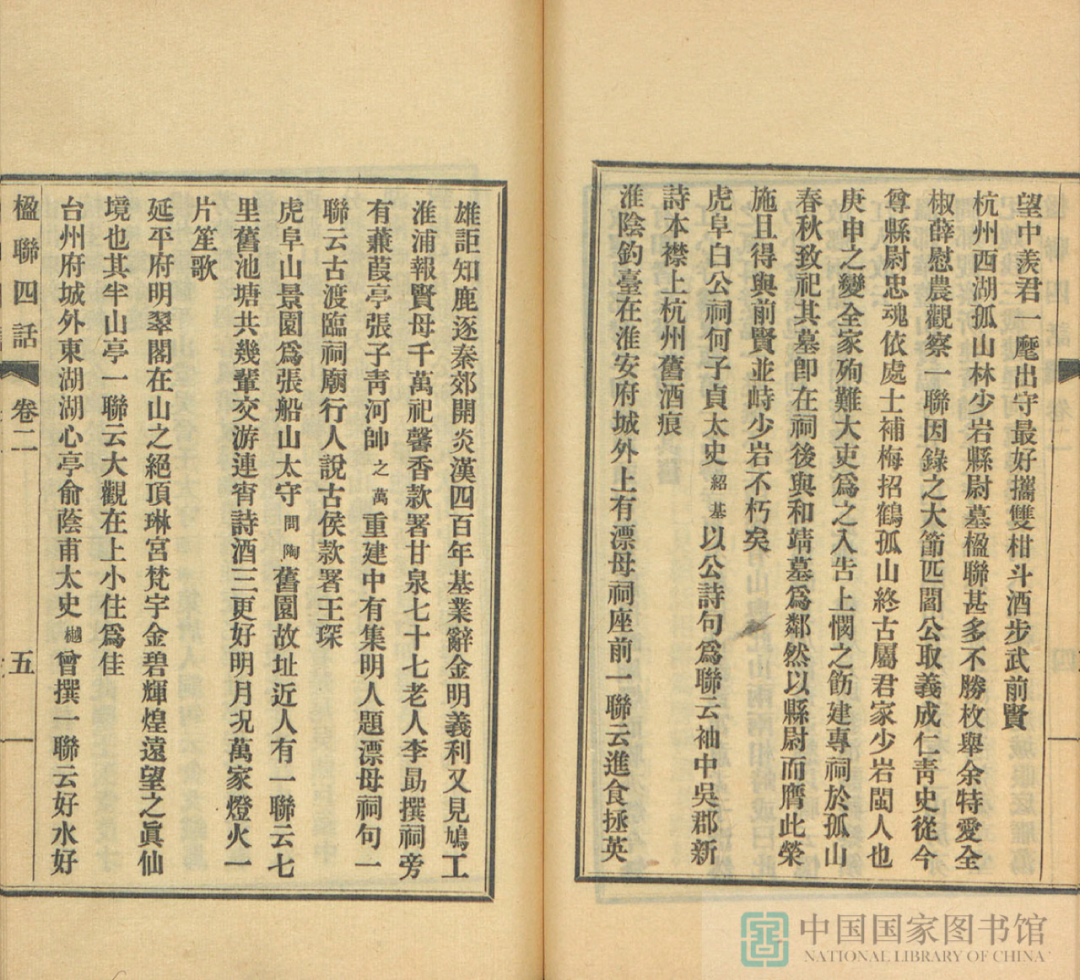 望中羨君一麾出守最好攜雙柑斗酒步武前賢
杭州西湖孤山林少岩縣尉墓楹聯甚多不勝枚舉余特愛全
椒薛慰農觀察一聯因錄之大節匹閻公取義成仁靑史從今
尊縣尉忠魂依處士補梅招鶴孤山終古屬君家少岩閩人也
庚申之變全家殉難大吏爲之入告上憫之飭建專祠於孤山
春秋致祀其墓卽在祠後與和靖墓爲鄰然以縣尉而膺此榮
施且得與前賢並峙少岩不朽矣
虎阜白公祠何子貞太史紹基以公詩句爲聯云袖中吳郡新
詩本襟上杭州舊酒痕
淮陰釣臺在淮安府城外上有漂母祠座前一聯云進食拯英
雄詎知鹿逐秦郊開炎漢四百年基業辭金明義利又見鳩工
淮浦報賢母千萬祀馨香款署甘泉七十七老人李勗撰祠旁
有蒹葭亭張子靑河帥之萬重建中有集明人題漂母祠句一
聯云古渡臨祠廟行人說古侯款署王琛
虎阜山景園爲張船山太守問陶舊園故址近人有一聯云七
里舊池塘共幾輩交游連宵詩酒三更好明月況萬家燈火一
片笙歌
延平府明翠閣在山之絕頂琳宮梵宇金碧輝煌遠望之眞仙
境也其半山亭一聯云大觀在上小住爲佳
台州府城外東湖湖心亭俞蔭甫太史樾曾撰一聯云好水好
楹聯四話 卷二 五
中国国家图书馆
NATIONAL LIBRARY OF CHINA